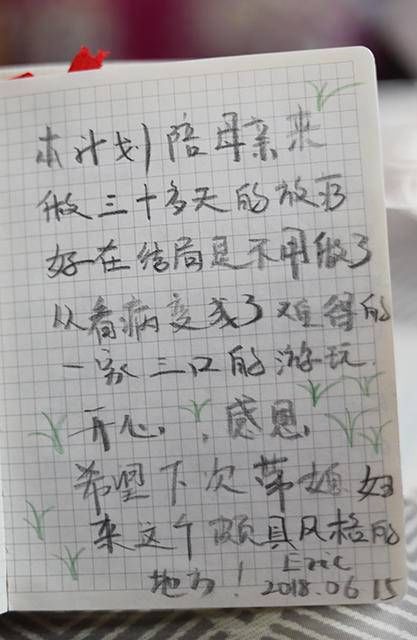 本计划陪母亲来
做三十多天的放疗
好在结局是不用做了
从看病变成了难得的
一家三口的游玩
开心，感恩。
希望下次带姐妹
来这个颇具风格的
地方！ Eric
2018.06 15